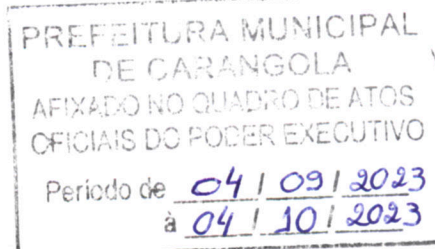 PREFEITURA MUNICIPAL
DE CARANGOLA
AFIXADO NO QUADRO DE ATOS
OFICIAIS DO PODER EXECUTIVO
Período de 04 / 09 / 2023
à 04 / 10 / 2023